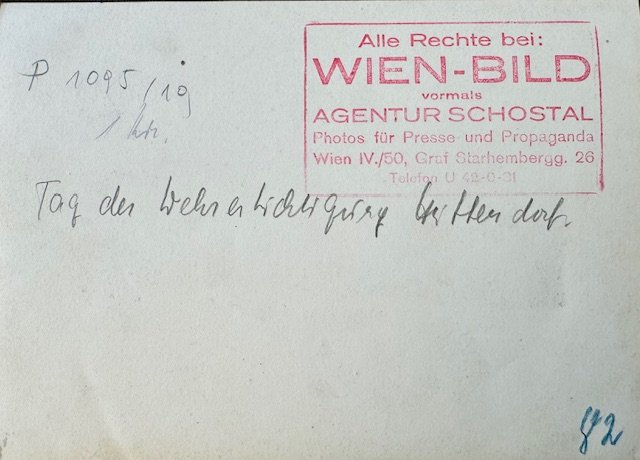 P 1095/19
1 hr.
Alle Rechte bei:
WIEN-BILD
vormals
AGENTUR SCHOSTAL
Photos für Presse und Propaganda
Wien IV./50, Graf Starhembergg. 26
Telefon U 42-0-31
Tag der Wehrertüchtigung Hüttendorf.
82